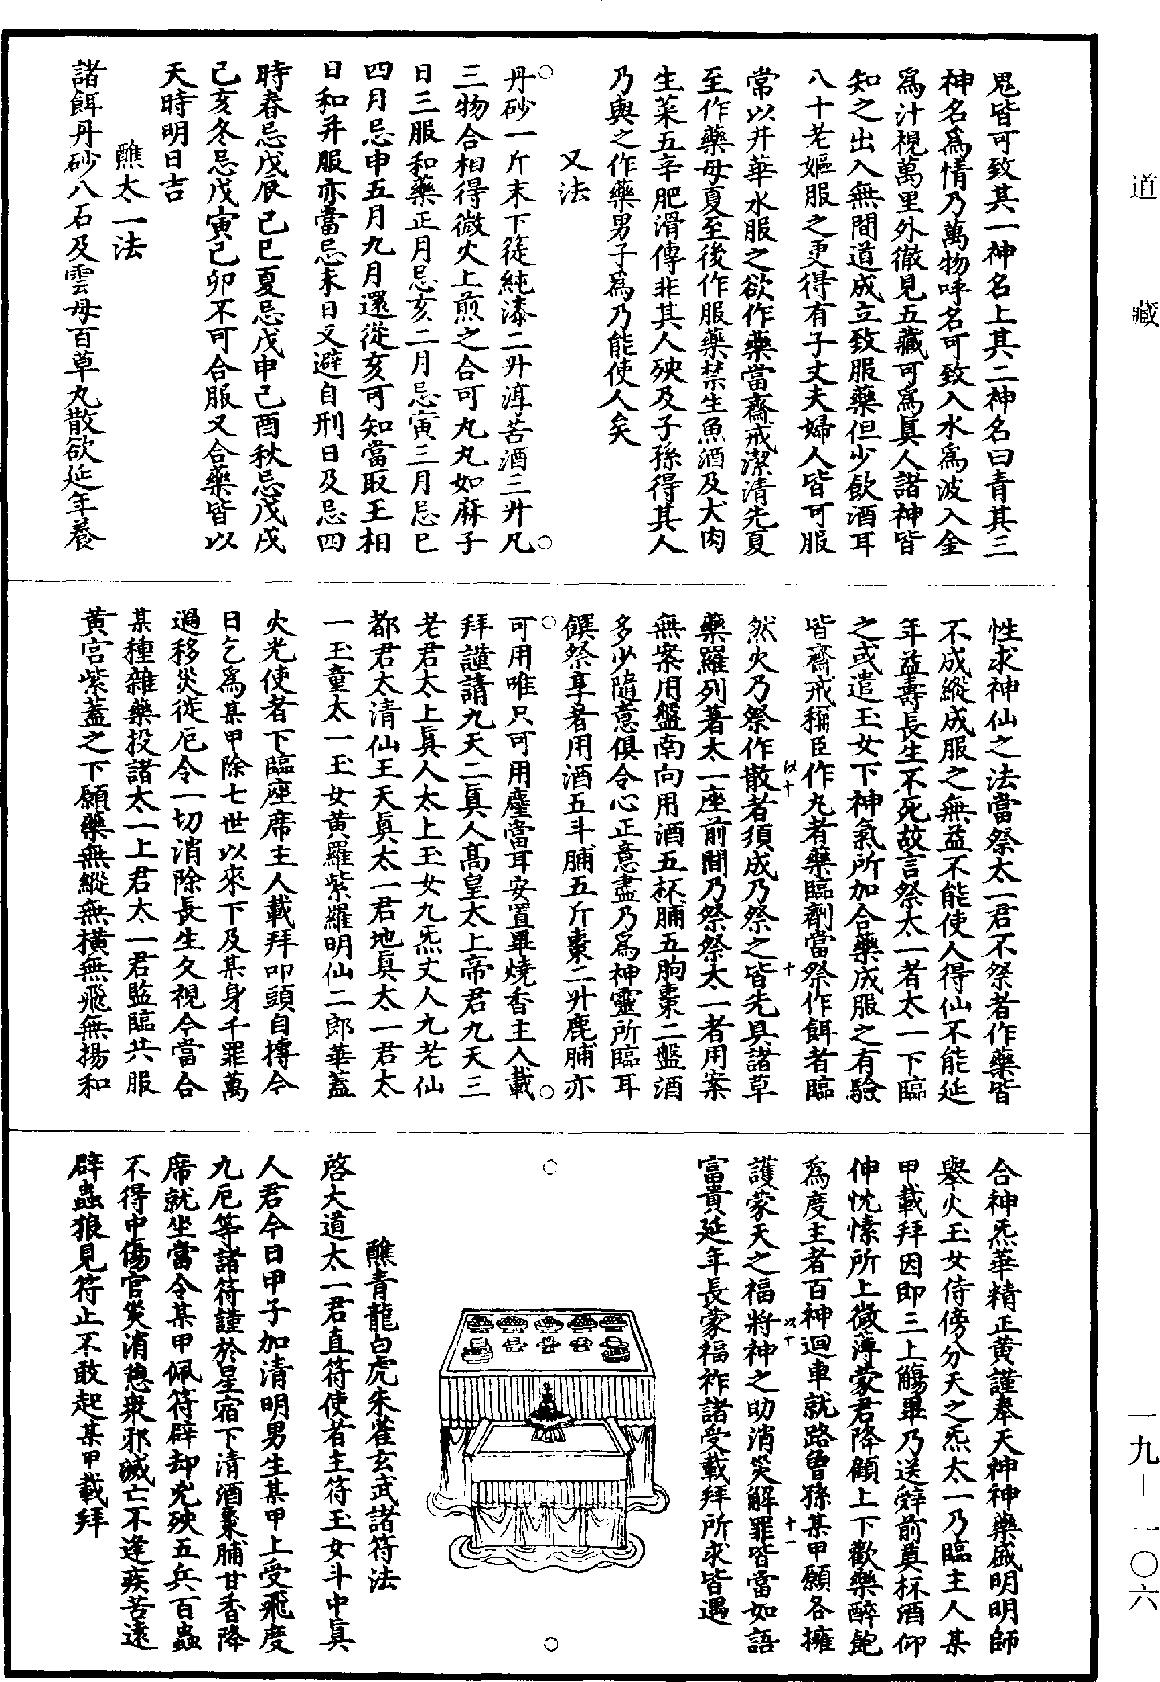 道藏
鬼皆可致其一神名上其二神名曰青其三
神名爲情乃萬物呼名可致入水爲波入金
爲汁視萬里外徹見五藏可爲真人諸神皆
知之出入無間道成立致服藥但少飲酒耳
八十老嫗服之更得有子丈夫婦人皆可服
常以井華水服之欲作藥當齋戒潔清先夏
至作藥母夏至後作服藥禁生魚酒及犬肉
生菜五辛肥滑傳非其人殃及子孫得其人
乃與之作藥男子爲乃能使人矣
又法
丹砂一斤末下篵純漆二升淳苦酒三升凡
三物合相得微火上煎之合可丸丸如麻子
日三服和藥正月忌亥二月忌寅三月忌巳
四月忌申五月九月還從亥可知當取王相
日和并服亦當忌未日又避自刑日及忌四
時春忌戊辰己巳夏忌戊申己酉秋忌戊戌
己亥冬忌戊寅己卯不可合服又合藥皆以
天時明日吉
醮太一法
諸餌丹砂八石及雲母百草丸散欲延年養
性求神仙之法當祭太一君不祭者作藥皆
不成縱成服之無益不能使人得仙不能延
年益壽長生不死故言祭太一者太一下臨
之或遣玉女下神氣所加合藥成服之有驗
皆齋戒稱臣作丸者藥臨劑當祭作餌者臨
然火乃祭作散者須成乃祭之皆先具諸草
藥羅列著太一座前間乃祭祭太一者用案
無案用盤南向用酒五杯脯五朐棗二盤酒
多少隨意俱令心正意盡乃爲神靈所臨耳
饌祭享者用酒五斗脯五斤棗二升鹿脯亦
可用唯只可用麈當耳安置畢燒香主人載
拜謹請九天二真人高皇太上帝君九天三
老君太上真人太上玉女九炁丈人九老仙
都君太清仙王天真太一君地真太一君太
一玉童太一玉女黃羅紫羅明仙二郎華蓋
火光使者下臨座席主人載拜叩頭自摶今
日乞爲某甲除七世以來下及某身千罪萬
過移災徙厄令一切消除長生久視今當合
某種雜藥投諸太一上君太一君監臨共服
黃宮紫蓋之下願藥無縱無橫無飛無揚和
合神炁華精正黃謹奉天神神藥歲明明師
舉火玉女侍傍分天之炁太一乃臨主人某
甲載拜因即三上觴畢乃送辭前奠杯酒仰
伸忱愫所上微薄蒙君降顧上下歡樂醉飽
爲度主者百神迴車就路曾孫某甲願各擁
護蒙天之福將神之助消災解罪皆當如語
富貴延年長蒙福祚諸受載拜所求皆遇
醮青龍白虎朱雀玄武諸符法
啓大道太一君直符使者主符玉女斗中真
人君今日甲子加清明男生某甲上受飛度
九厄等諸符謹於星宿下清酒棗脯甘香降
席就坐當令某甲佩符辟却兇殃五兵百蟲
不得中傷官災消息衆邪滅亡不逢疾苦遠
辟蟲狼見符止不敢起某甲載拜
一九—一〇六